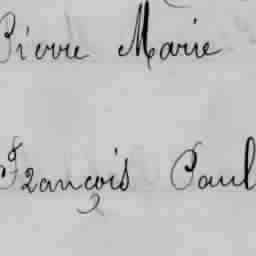 Pierre Marie
François Paul